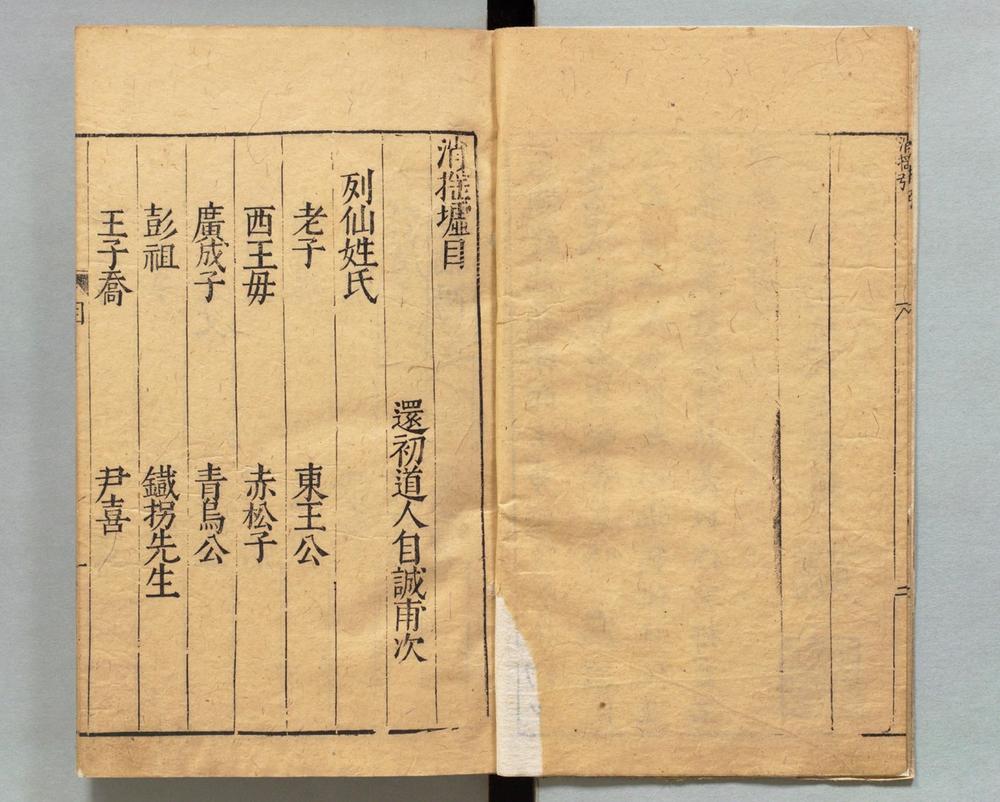 消揺引
二
消揺墟目
還初道人自誠甫次
列仙姓氏
老子　東王公
西王毋　赤松子
廣成子　青烏公
彭祖　鐵拐先生
王子喬　尹喜
目
一